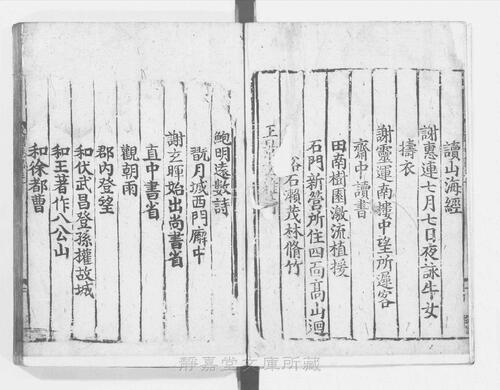 讀山海經
謝惠連七月七日夜詠牛女
擣衣
謝靈運南樓中望所遲客
齋中讀書
田南樹園激流植援
石門新營所住四面高山迴
谿石瀨茂林脩竹
鮑明遠數詩
翫月城西門廨中
謝玄暉始出尚書省
直中書省
觀朝雨
郡内登望
和伏武昌登孫權故城
和王著作八公山
和徐都曹
靜嘉堂文庫所藏